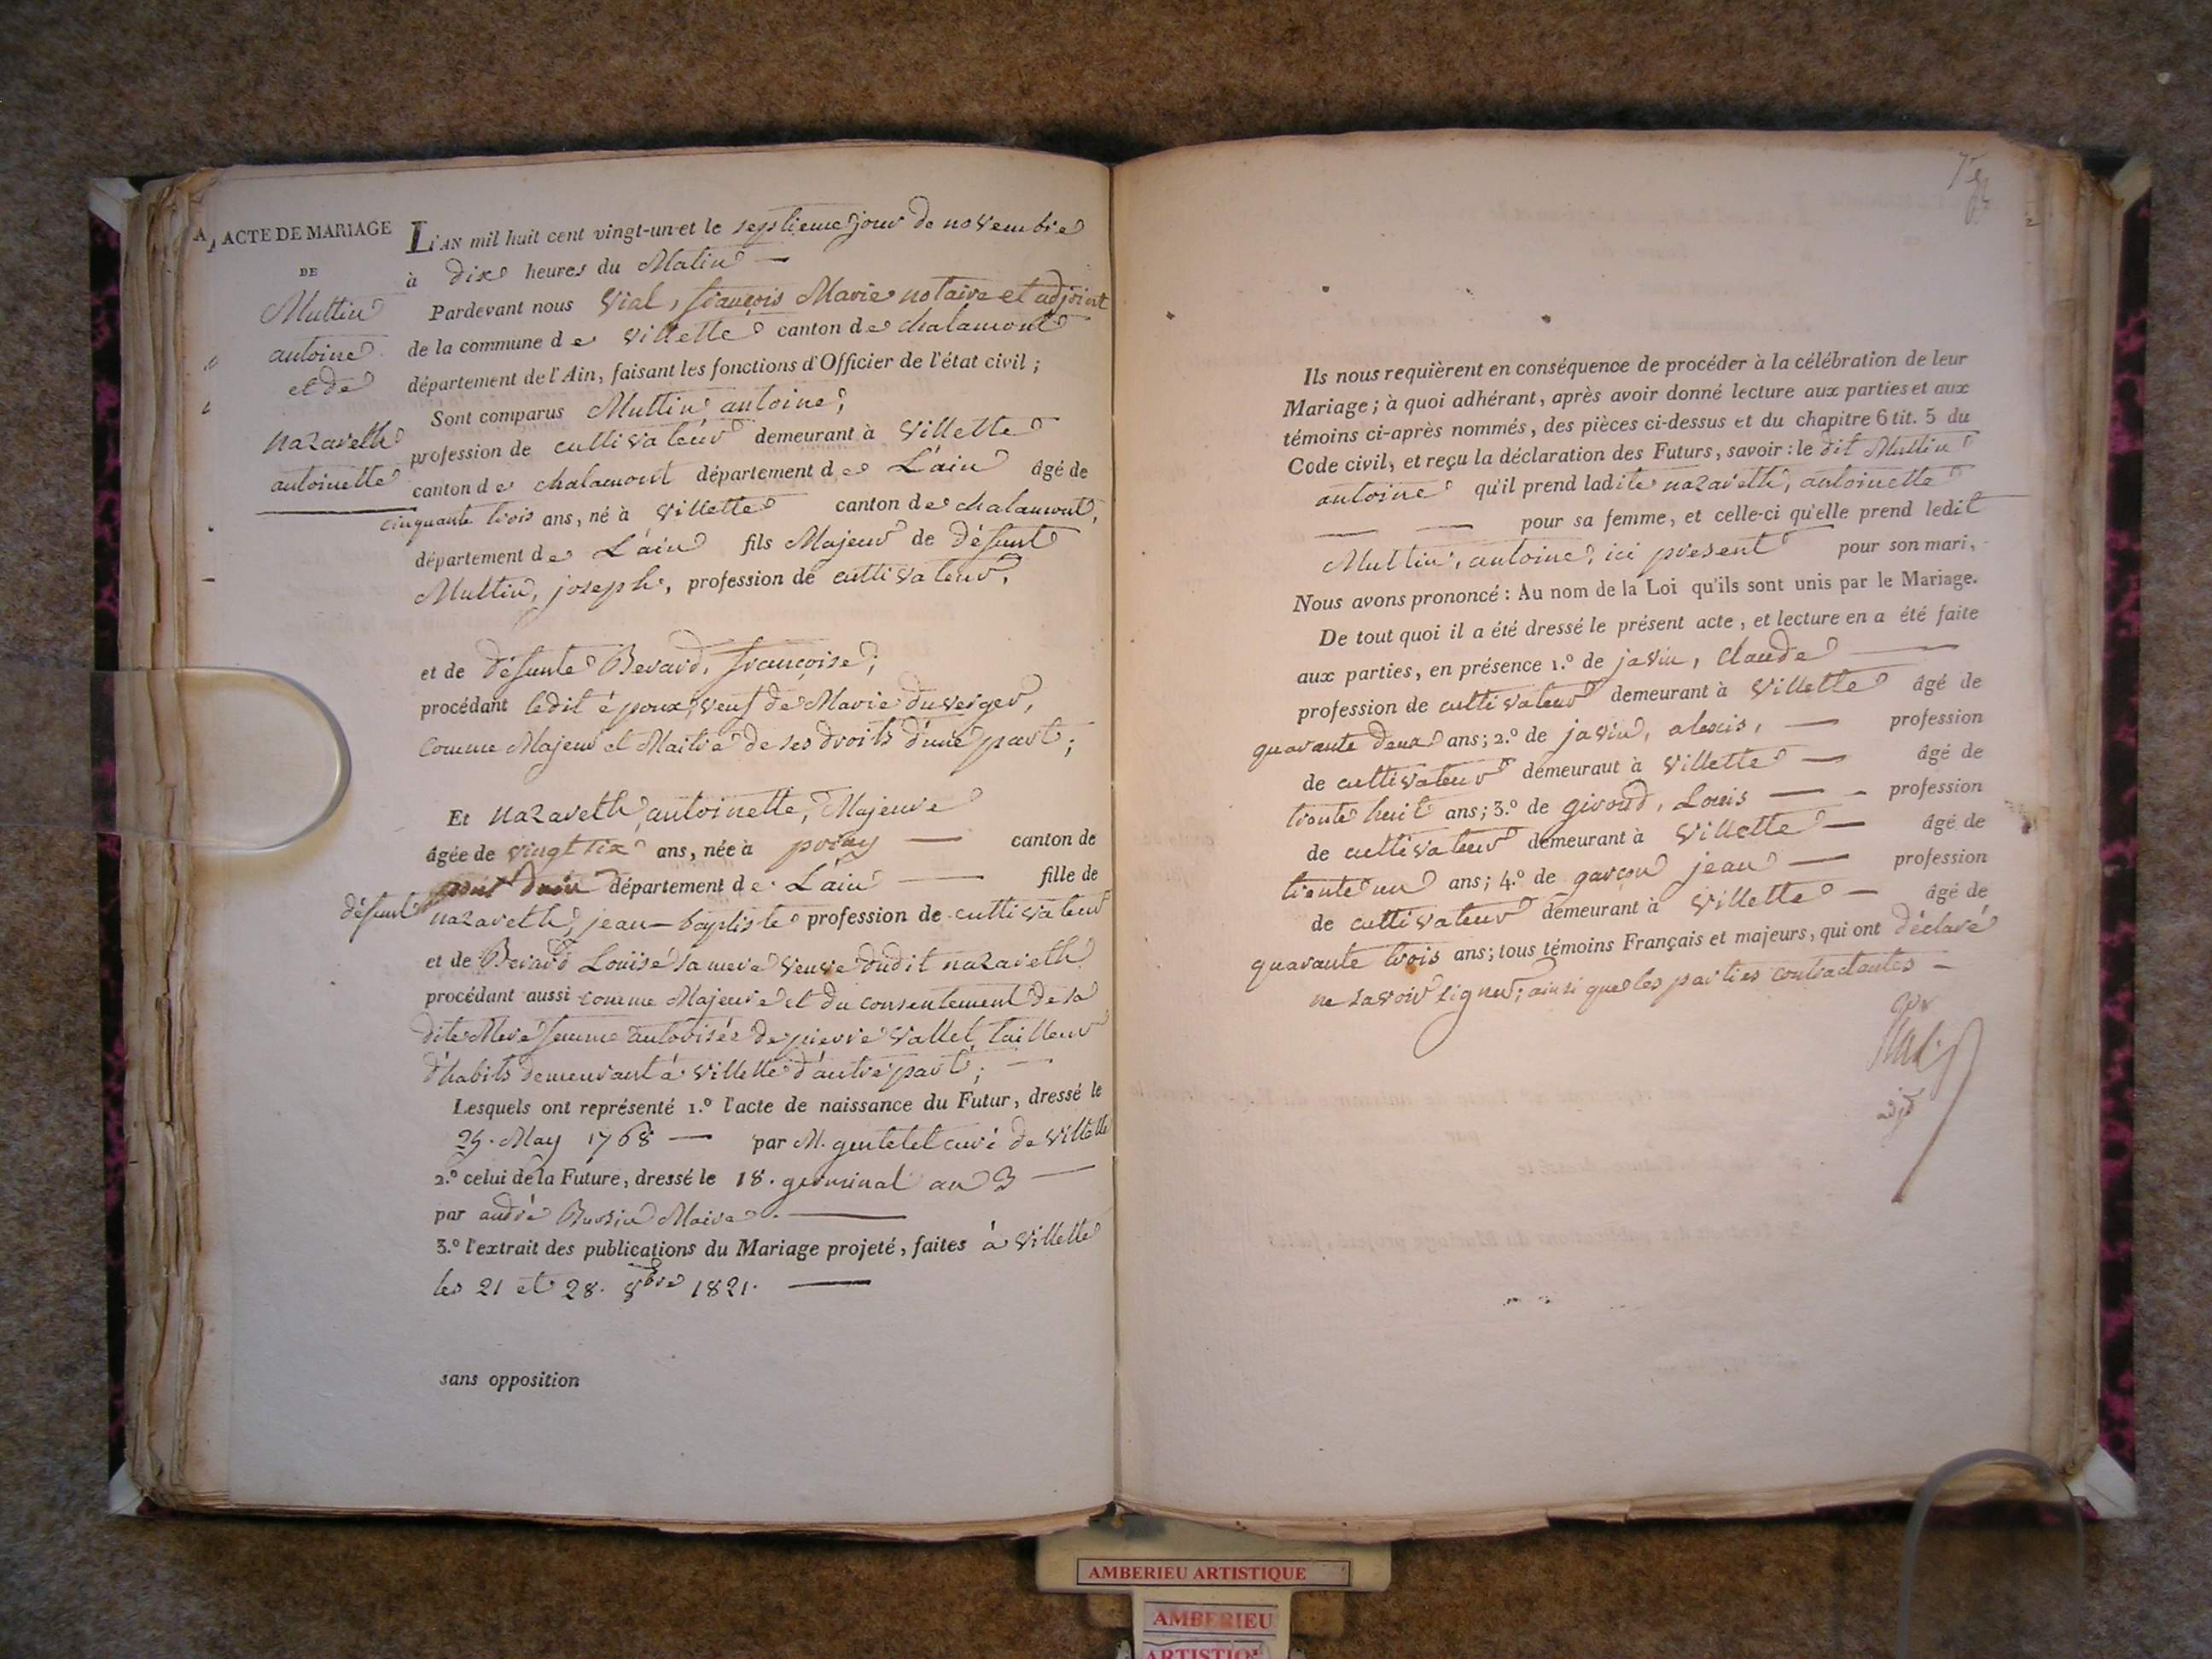 ACTE DE MARIAGE
DE
Muttin
antoine
et de
nazareth
antoinette
L'AN mil huit cent vingt-un et le septieme jour de novembre
à dix heures du Matin —
Pardevant nous Vial, françois Marie notaire et adjoint
de la commune de Villette canton de chalamont
département de l'Ain, faisant les fonctions d'Officier de l'état civil ;
Sont comparus Muttin antoine,
profession de cultivateur demeurant à Villette
canton de chalamont département de L'ain âgé de
cinquante trois ans, né à Villette canton de chalamont,
département de L'ain fils Majeur de défunt
Muttin, joseph, profession de cultivateur,
et de défunte Berard, françoise ;
procédant ledit époux, veuf de Marie duverger,
comme Majeur et Maitre de ses droits d'une part ;
Et nazareth, antoinette, Majeure
âgée de vingt six ans, née à priay — canton de
pont dain département de L'ain — fille de
défunt nazareth, jean-baptiste profession de cultivateur
et de Berard Louise sa mere veuve dudit nazareth
procédant aussi comme Majeure et du consentement de sa
dite Mere femme autorisée de pierre Vallet, tailleur
d'habits demeurant à Villette d'autre part ; —
Lesquels ont représenté 1.º l'acte de naissance du Futur, dressé le
25. May 1768 — par M. gentetet curé de Villette
2.º celui de la Future, dressé le 18. germinal an 3 —
par andré Maire. —
3.º l'extrait des publications du Mariage projeté, faites à Villette
les 21 et 28. 8bre 1821. —
sans opposition
Ils nous requièrent en conséquence de procéder à la célébration de leur
Mariage ; à quoi adhérant, après avoir donné lecture aux parties et aux
témoins ci-après nommés, des pièces ci-dessus et du chapitre 6 tit. 5 du
Code civil, et reçu la déclaration des Futurs, savoir : le dit Muttin
antoine qu'il prend ladite nazareth, antoinette
— — pour sa femme, et celle-ci qu'elle prend ledit
Muttin, antoine, ici present pour son mari,
Nous avons prononcé : Au nom de la Loi qu'ils sont unis par le Mariage.
De tout quoi il a été dressé le présent acte, et lecture en a été faite
aux parties, en présence 1.º de javin, Claude —
profession de cultivateur demeurant à Villette âgé de
quarante deux ans ; 2.º de javin, alexis, — profession
de cultivateur demeurant à Villette — âgé de
trente huit ans ; 3.º de giroud, Louis — - profession
de cultivateur demeurant à Villette — âgé de
trente un ans ; 4.º de garçon jean — profession
de cultivateur demeurant à Villette — âgé de
quarante trois ans ; tous témoins Français et majeurs, qui ont déclaré
ne savoir signer ; ainsi que les parties contractantes —
Vial
adjt
AMBERIEU ARTISTIQUE
AMBERIEU
ARTISTIQUE